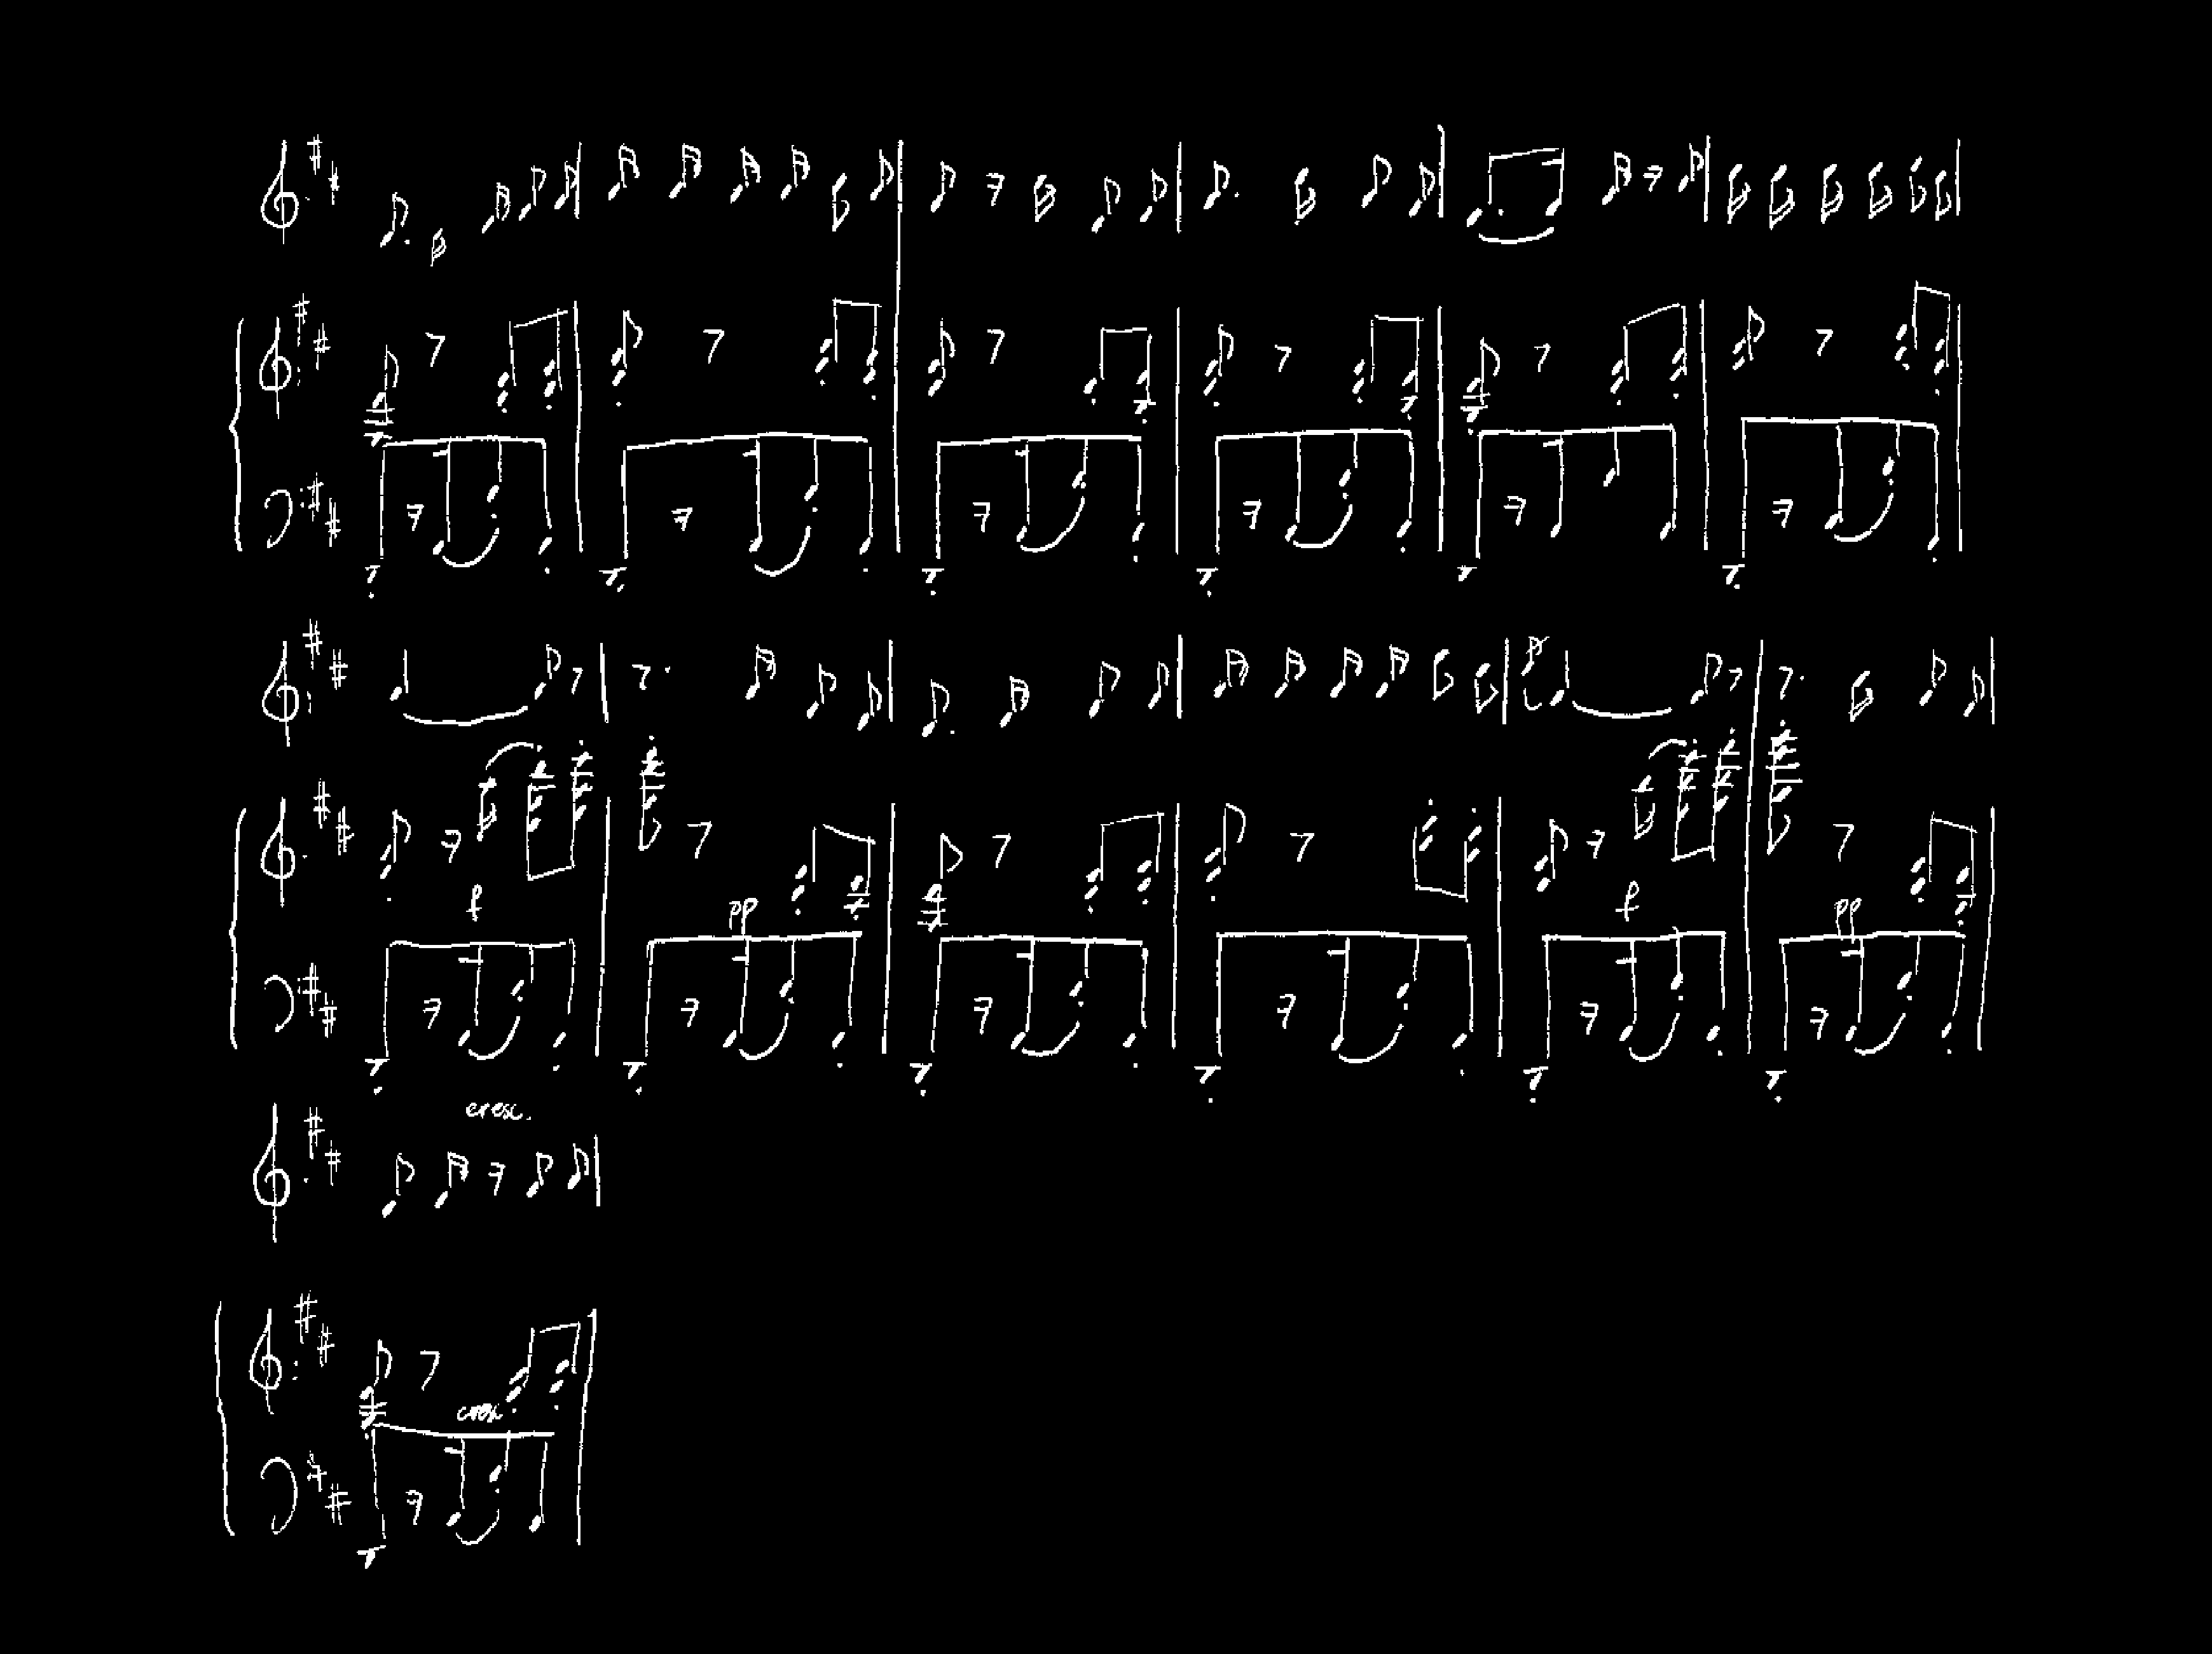 f pp f pp
cresc.
cresc